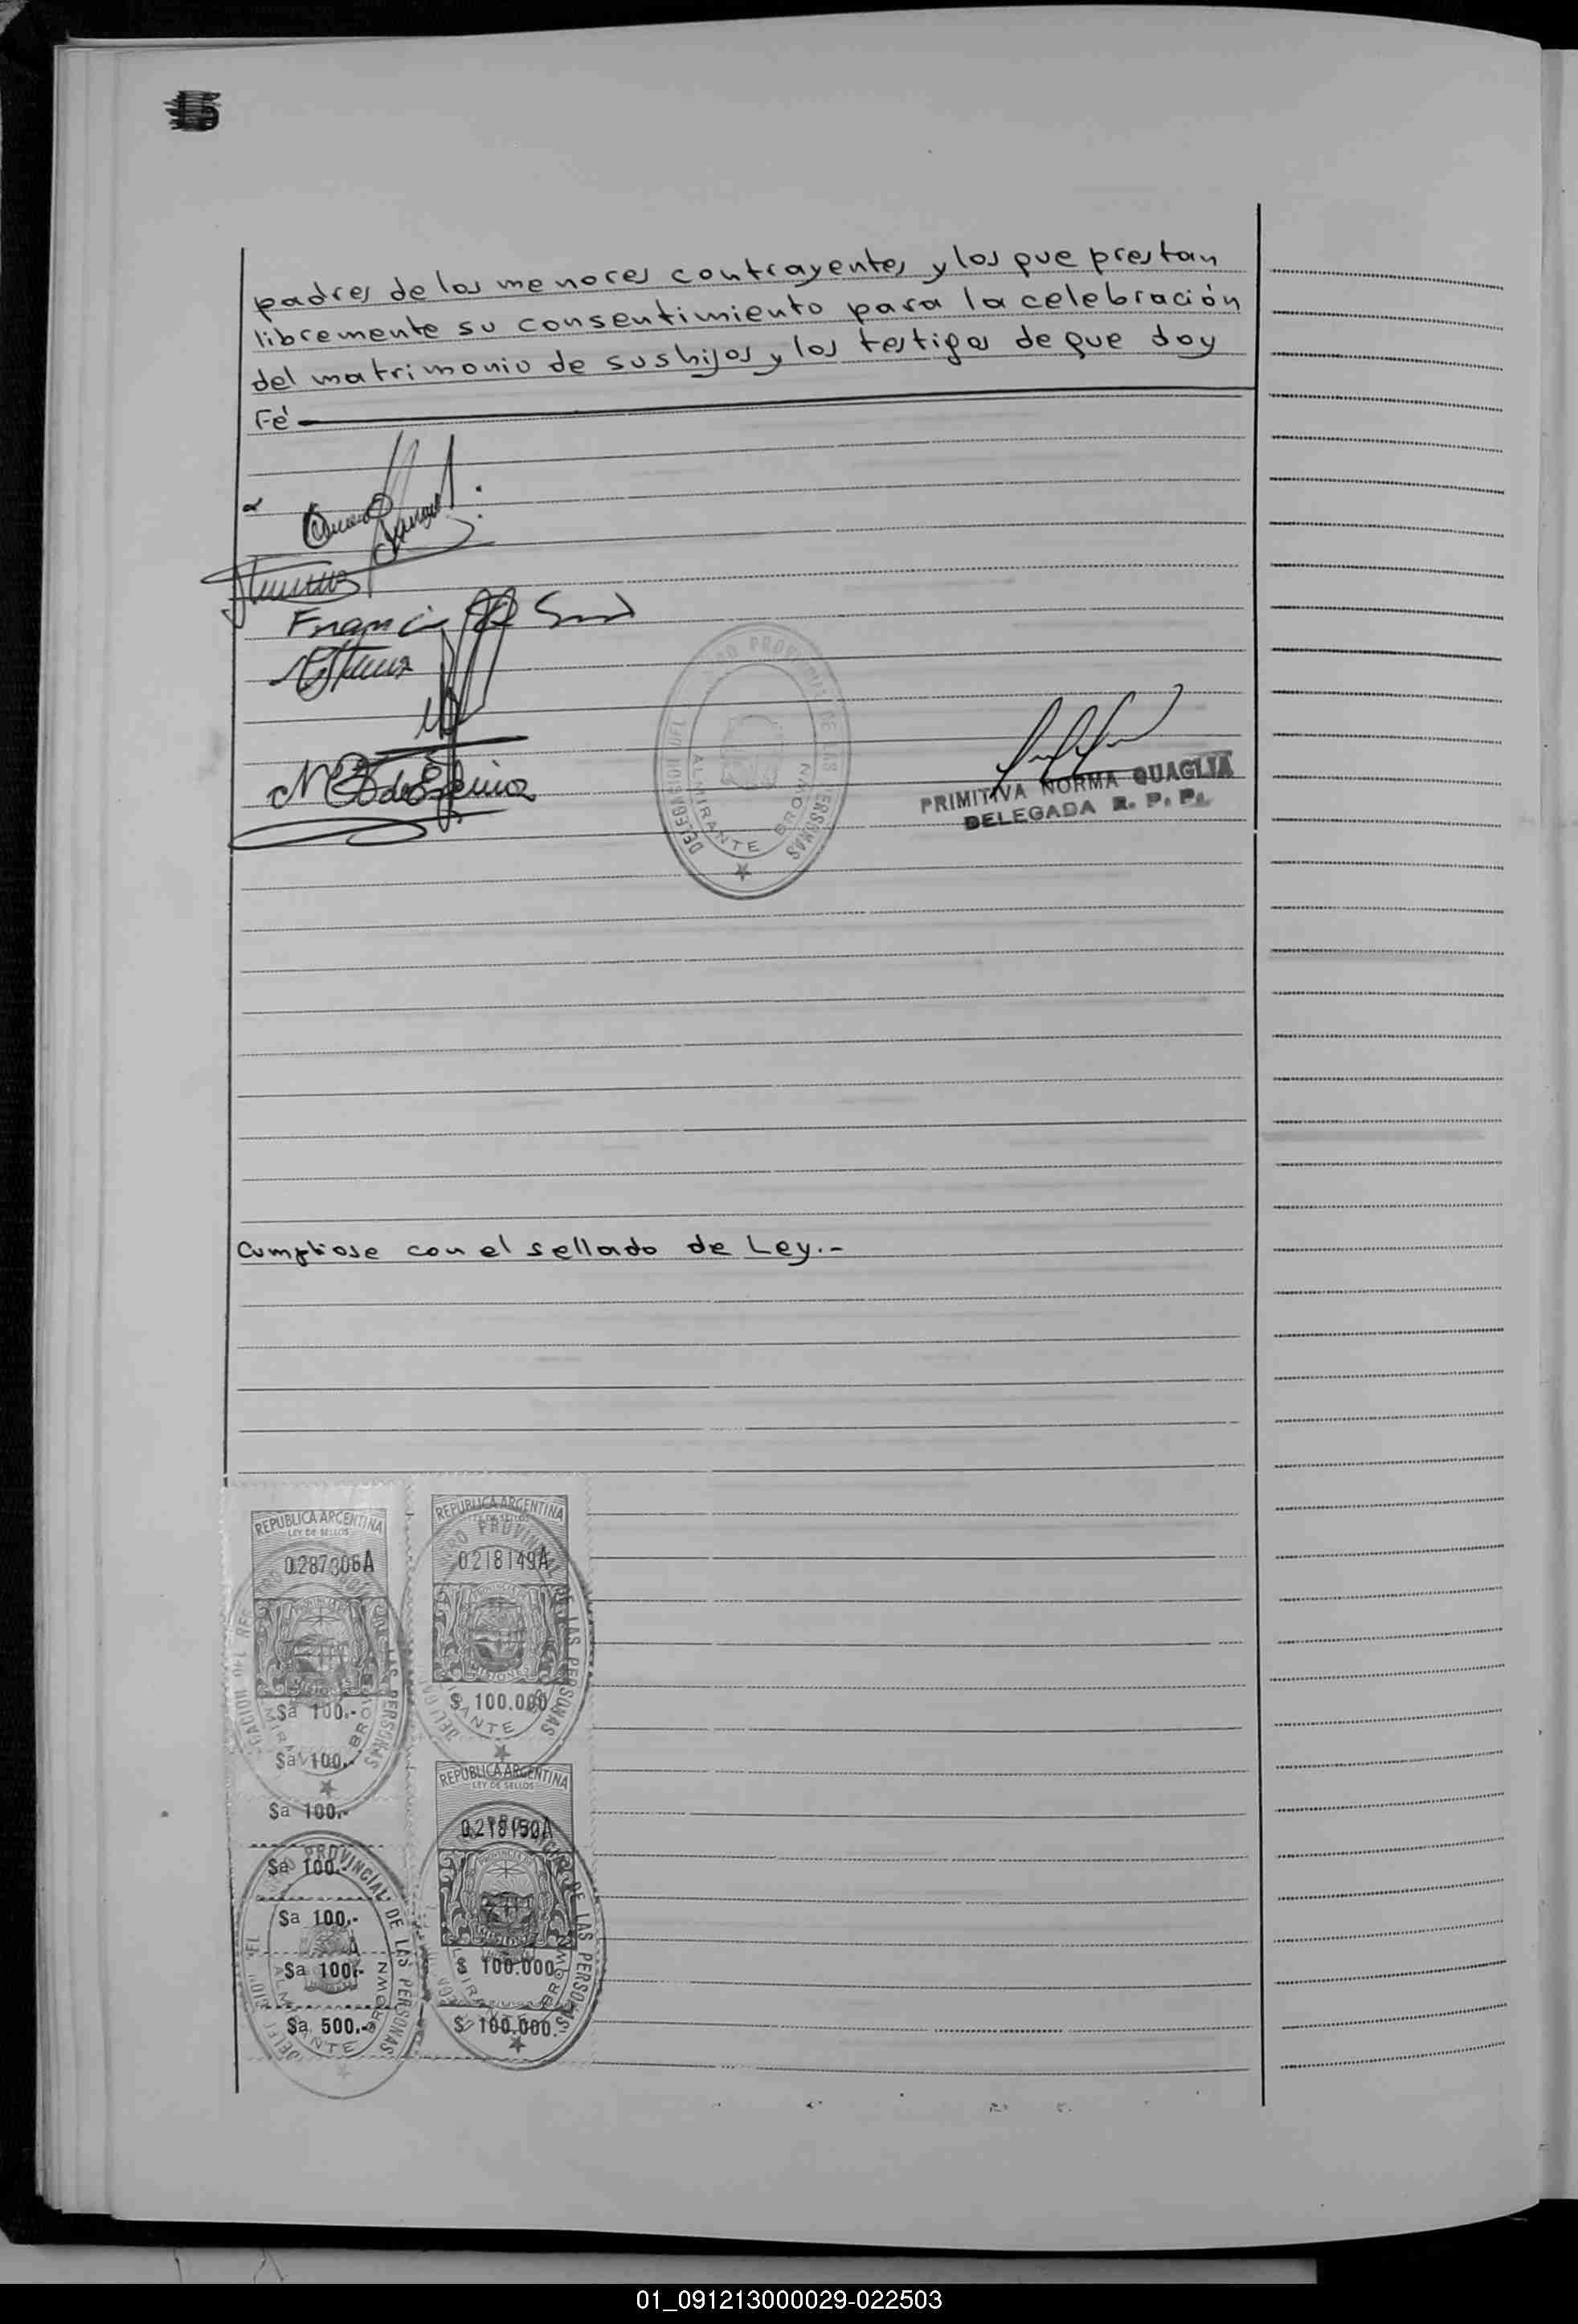 15
padres de los menores contrayentes y los que prestan
libremente su consentimiento para la celebración
del matrimonio de sus hijos y los testigos de que doy
Fé
DELEGACION DEL PROVINCIAL DE LAS PERSONAS
ALMIRANTE BROWN
PRIMITIVA NORMA QUAGLIA
DELEGADA R. P. P.
Cumpliose con el sellado de Ley.-
REPUBLICA ARGENTINA
LEY DE SELLOS
0287306A
$a 100.-
$a 100.-
$a 100.-
$a 100.-
$a 100.-
$a 100.-
$a 500.-
PROVINCIAL DE LAS PERSONAS
REPUBLICA ARGENTINA
LEY DE SELLOS
0218149A
MISIONES
$ 100.000
DE LAS PERSONAS
REPUBLICA ARGENTINA
LEY DE SELLOS
0218150A
MISIONES
$ 100.000.
$ 100.000.
DE LAS PERSONAS
01_091213000029-022503